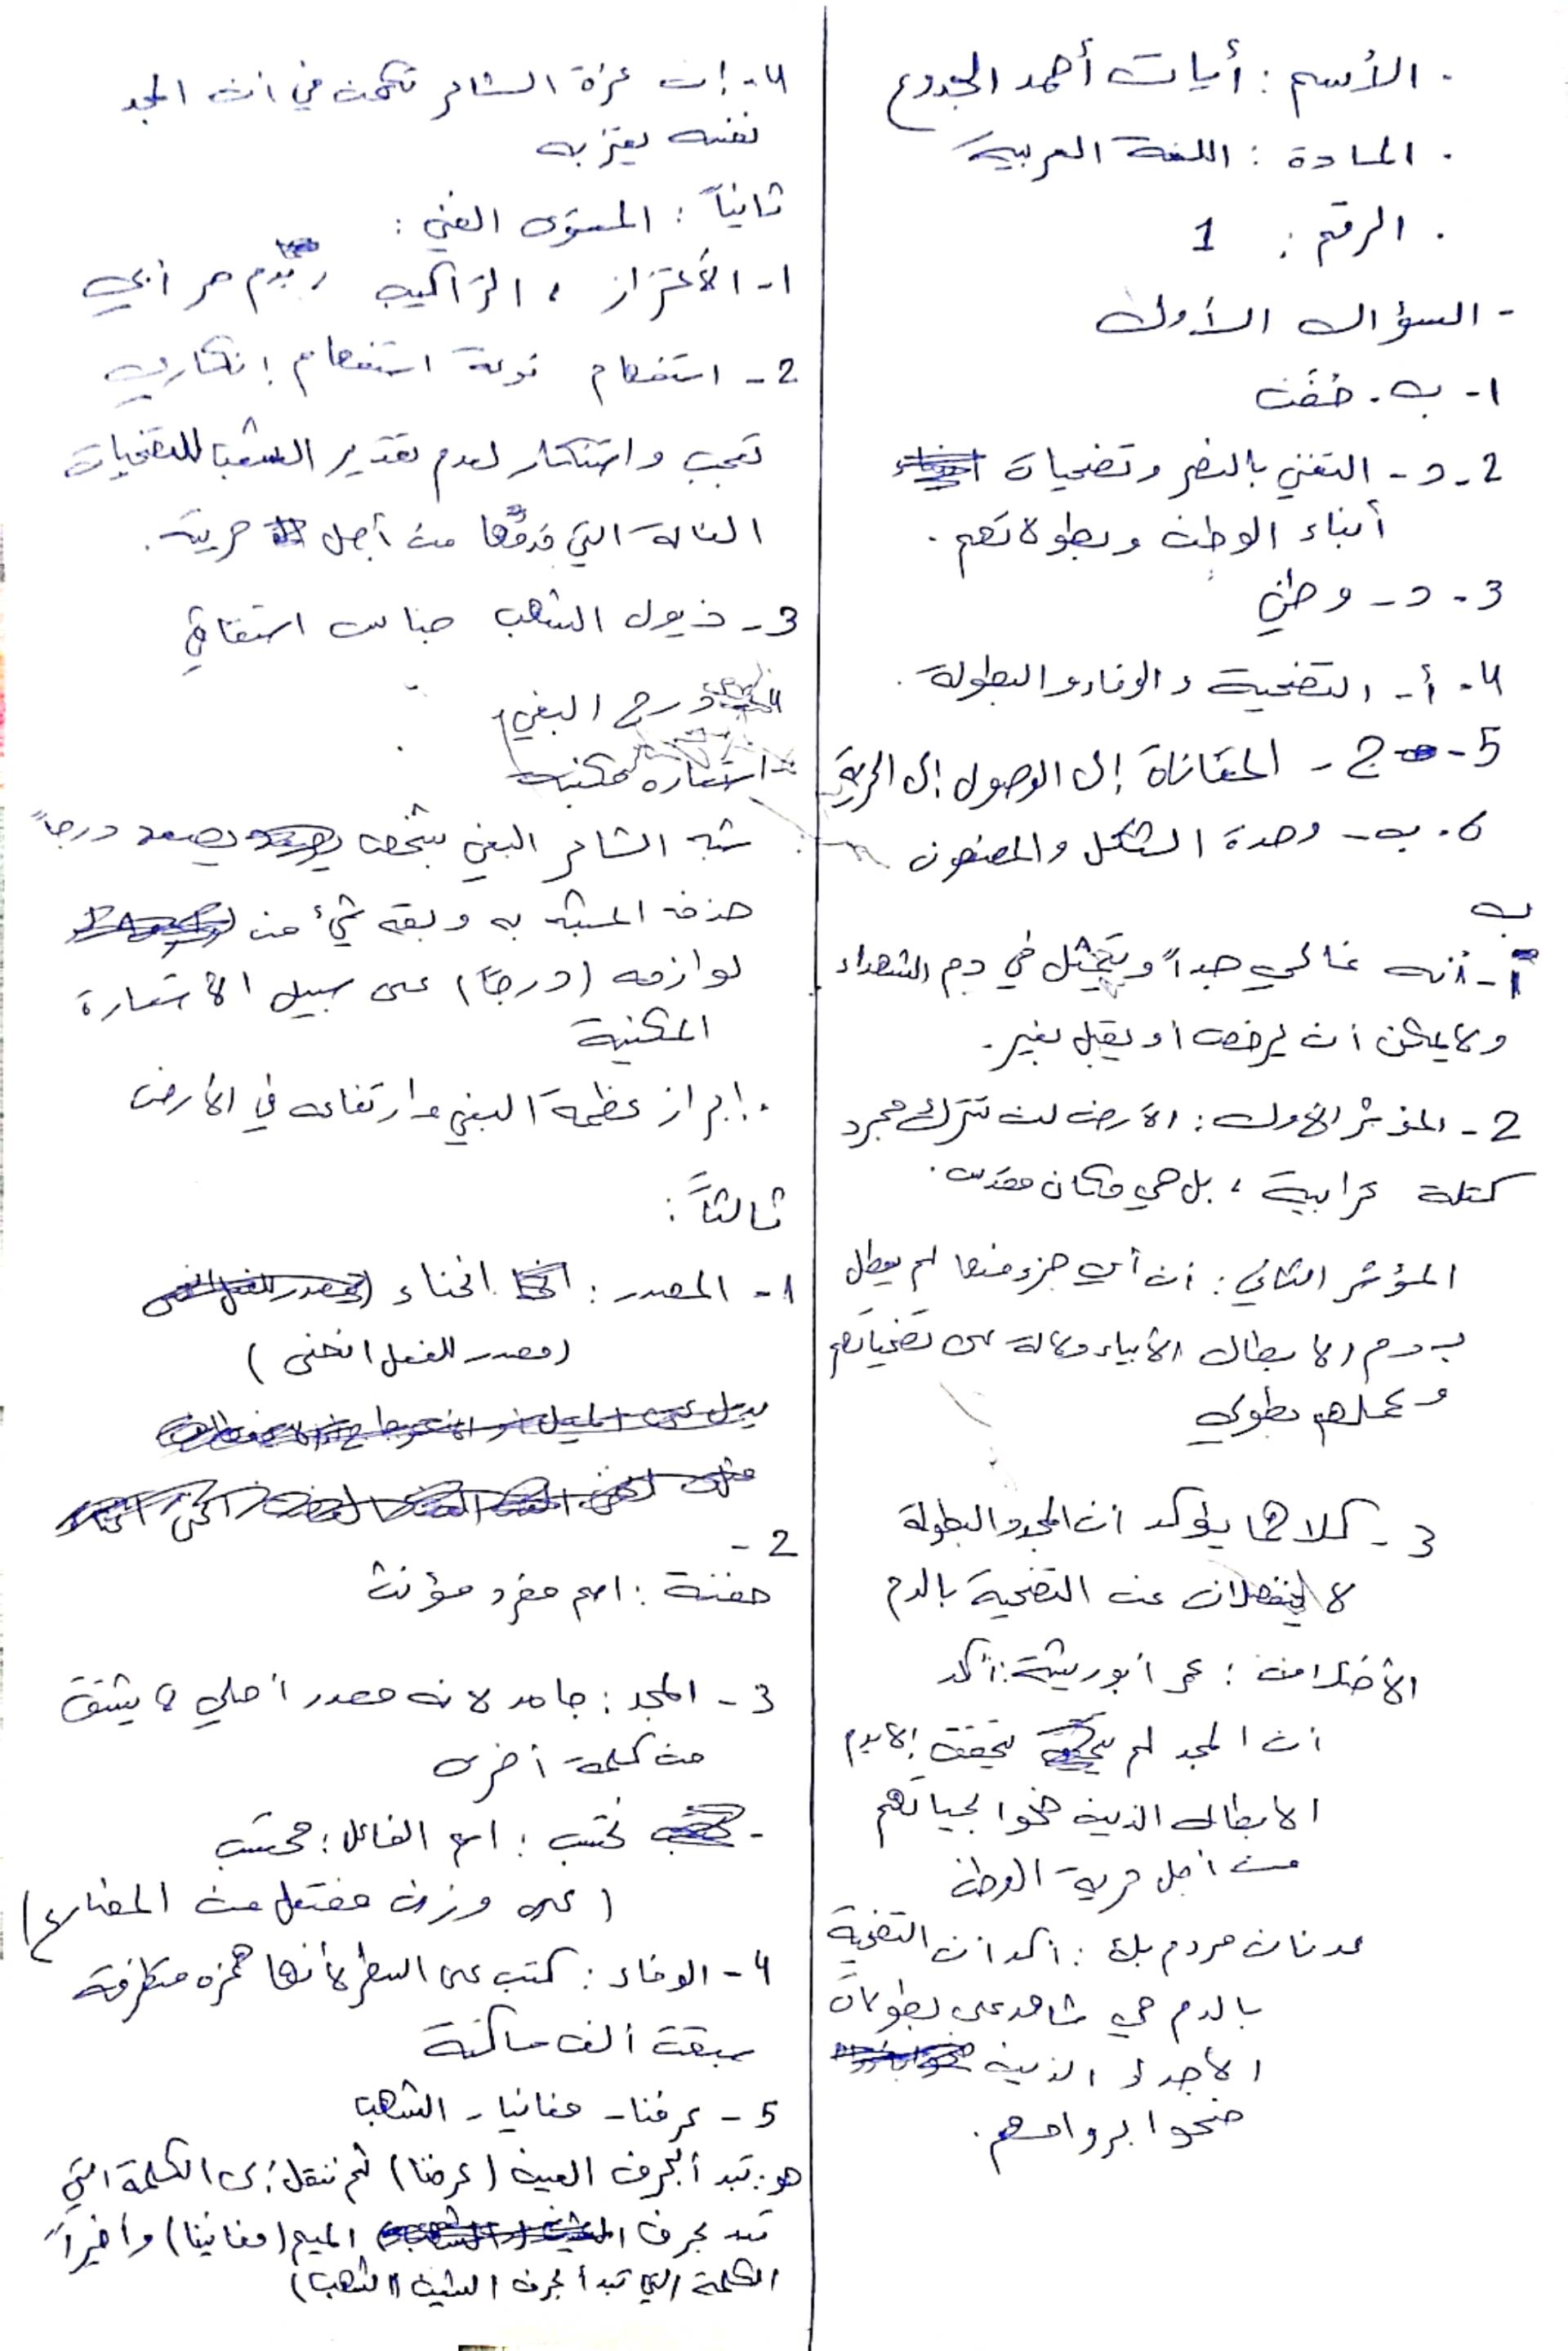 . الأسم : أيات أحمد الجدوع
. المادة : اللغة العربية
. الرقم : 1
- السؤال الأول
1- ب . خفت
2 - د - التغني بالنصر وتضحيات
أبناء الوطن وبطولاتهم .
3 - د - وطني
4 - أ - التضحية والوفاء والبطولة .
5 - ج - المعاناة إلى الوصول إلى الحرية
6 . ب - وحدة الشكل والمضمون
ب
1 - أنه غالي جداً ويتمثل في دم الشهداء
ولا يمكن ان يرخص او يقبل بغير .
2 - المؤشر الأول : الأرض لن تترك مجرد
كتلة ترابية ، بل هي مكان مقدس .
المؤشر الثاني : ان أي جزء منها لم يطل
ب دم الابطال الأبياء دلالة على تضحياتهم
وعملهم بطولي
3 - كلاهما يؤكد ان المجد والبطولة
لا ينفصلان عن التضحية بالدم
الأختلاف : عمر أبو ريشة : أكد
ان المجد لم يتحقق إلا بدم
الابطال الذين ضحوا بحياتهم
من اجل حرية الوطن
عدنان مردم بك : أكد ان التضحية
بالدم هي شاهد على بطولات
الأجداد الذين
ضحوا بروامسهم .
4 - إن عزة الشاعر تكمن في ان المجد
نفسه يعتز به
ثانياً : المستوى الفني :
1 - الأعتزاز ، التراكيب ، بدم حر أبي
2 - استفهام نوعه استفهام إنكاري
تعجب واستنكار لعدم تقدير الشعب للتضحيات
الغالية التي قدمها من أجل حريته .
3 - ذيول الشهب جناس اشتقاقي
درج البغي
استعارة مكنية
شبه الشاعر البغي بشخص يصعد درجاً
حذف المشبه به وبقه شيء من
لوازمه (درجاً) على سبيل الأستعارة
المكنية
. إبراز عظمة البغي وارتفاعه في الأرض
ثالثاً :
1 - المصدر : انحناء
(مصدر للفعل انحنى )
2 -
حفنة : اسم مفرد مؤنث
3 - المجد : جامد لانه مصدر أصلي لا يشتق
من كلمة أخرى
- نحتسب : اسم الفاعل : محتسب
(على وزن مفتعل من المضارع)
4 - الوفاء : كتبت على السطر لأنها همزه متطرفة
سبقت ألف ساكنة
5 - عرفنا - مغانيا - الشهب
هو : تبدأ بحرف العين (عرفنا) ثم ننتقل إلى الكلمة التي
تبد بحرف الميم (مغانينا) وأخيراً
الكلمة التي تبدأ بحرف الشين (الشهب)